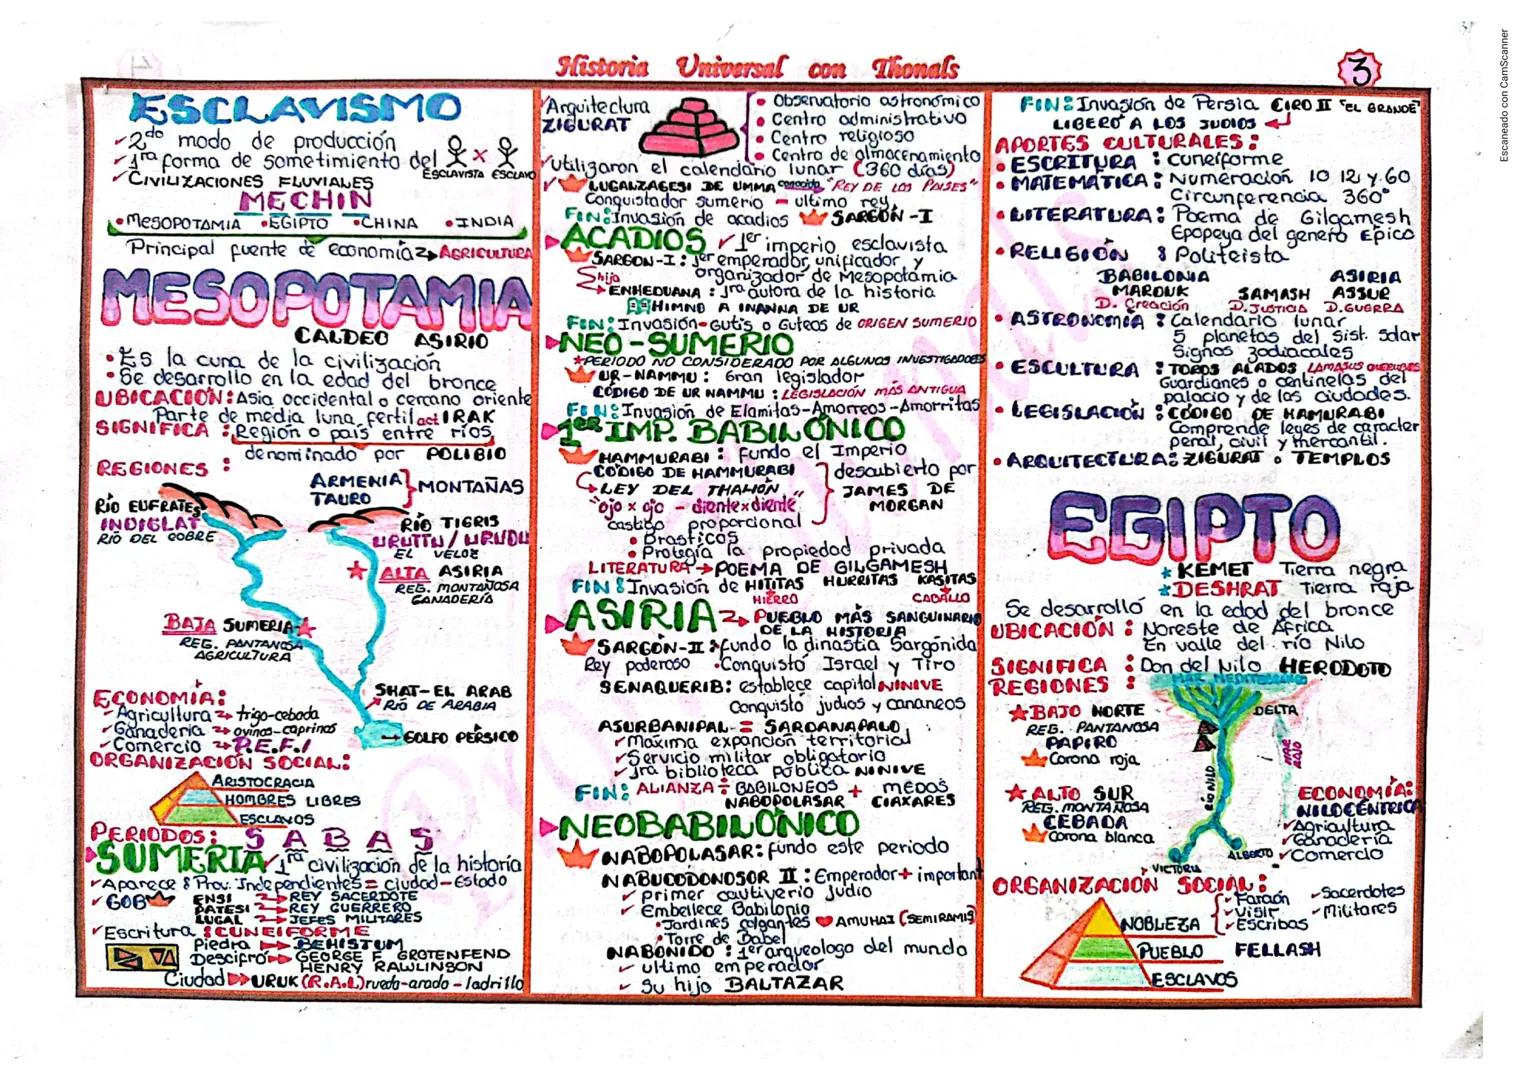 Historia Universal con Thonals
3
Escaneado con CamScanner
ESCLAVISMO
2do modo de producción
1ra forma de sometimiento del
ESCLAVISTA x ESCLAVO
CIVILIZACIONES FLUVIALES
MECHIN
MESOPOTAMIA • EGIPTO • CHINA • INDIA
Principal fuente de economía AGRICULTURA
MESOPOTAMIA
CALDEO ASIRIO
• Es la cuna de la civilización
• Se desarrollo en la edad del bronce
UBICACIÓN: Asia occidental o cercano oriente
Parte de media luna fertil act IRAK
SIGNIFICA: Región o país entre ríos
denominado por POLIBIO
REGIONES:
ARMENIA
TAURO
MONTAÑAS
RÍO EUFRATES
INDIGLAT
RIO DEL COBRE
RÍO TIGRIS
URUTTU/URUDU
EL VELOZ
ALTA ASIRIA
REG. MONTAÑOSA
GANADERÍA
BAJA SUMERIA
REG. PANTANOSA
AGRICULTURA
SHAT-EL ARAB
RÍO DE ARABIA
GOLFO PÉRSICO
ECONOMÍA:
Agricultura trigo-cebada
Ganaderia ovinos-caprinos
Comercio P.E.F.I
ORGANIZACIÓN SOCIAL:
ARISTOCRACIA
HOMBRES LIBRES
ESCLAVOS
PERIODOS: S A B A S
SUMERIA 1ra civilización de la historia
Aparece 8 Prov. Independientes = ciudad-Estado
GOB
ENSI REY SACERDOTE
PATESI REY GUERRERO
LUGAL JEFES MILITARES
Escritura: CUNEIFORME
Piedra BEHISTUM
Descifró GEORGE F GROTENFEND
HENRY RAWLINSON
Ciudad URUK (R.A.L) rueda-arado-ladrillo
Arquitectura
ZIGURAT
• Observatorio astronómico
• Centro administrativo
• Centro religioso
• Centro de almacenamiento
Utilizaron el calendario lunar (360 días)
LUGALZAGESI DE UMMA conocido "REY DE LOS PAISES"
Conquistador sumerio - ultimo rey
FIN: Invasión de acadios SARGON-I
ACADIOS 1er imperio esclavista
SARGON-I: 1er emperador, unificador y
organizador de Mesopotamia
hija
ENHEDUANA: 1ra autora de la historia
HIMNO A INANNA DE UR
FIN: Invasión-Gutis o Guteos de ORIGEN SUMERIO
NEO-SUMERIO
*PERIODO NO CONSIDERADO POR ALGUNOS INVESTIGADORES
UR-NAMMU: Gran legislador
CÓDIGO DE UR NAMMU: LEGISLACIÓN MÁS ANTIGUA
FIN: Invasión de Elamitas-Amorreos-Amorritas
1ER IMP. BABILÓNICO
HAMMURABI: Fundo el Imperio
CÓDIGO DE HAMMURABI
LEY DEL THALIÓN
"ojo x ojo - diente x diente"
descubierto por
JAMES DE
MORGAN
castigo proporcional
• Drasticos
• Protegía la propiedad privada
LITERATURA → POEMA DE GILGAMESH
FIN: Invasión de HITITAS HURRITAS KASITAS
HIERRO CABALLO
ASIRIA PUEBLO MÁS SANGUINARIO
DE LA HISTORIA
SARGÓN-II fundo la dinastia Sargónida
Rey poderoso • Conquistó Israel y Tiro
SENAQUERIB: establece capital NINIVE
Conquistó judios y cananeos
ASURBANIPAL = SARDANAPALO
Maxima expanción territorial
Servicio militar obligatorio
1ra biblioteca pública NINIVE
FIN: ALIANZA: BABILONEOS + MEDOS
NABOPOLASAR CIAXARES
NEOBABILÓNICO
NABOPOLASAR: fundo este periodo
NABUCODONOSOR II: Emperador + important
primer cautiverio judio
Embellece Babilonia
• Jardines colgantes AMUHAI (SEMIRAMIS)
• Torre de Babel
NABONIDO: 1er arqueologo del mundo
ultimo emperador
Su hijo BALTAZAR
FIN: Invasión de Persia CIRO II "EL GRANDE"
LIBERÓ A LOS JUDIOS
APORTES CULTURALES:
• ESCRITURA: Cuneiforme
• MATEMÁTICA: Numeración 10 12 y 60
Circunferencia 360°
• LITERATURA: Poema de Gilgamesh
Epopeya del genero Epico
• RELIGIÓN: Politeista
BABILONIA ASIRIA
MARDUK SAMASH ASSUR
D. Creación D. JUSTICIA D. GUERRA
• ASTRONOMÍA: Calendario lunar
5 planetas del Sist. Solar
Signos zodiacales
• ESCULTURA: TOROS ALADOS LAMASUS QUERUBES
Guardianes o centinelas del
palacio y de las ciudades.
• LEGISLACIÓN: CÓDIGO DE HAMURABI
Comprende leyes de caracter
penal, civil y mercantil.
• ARQUITECTURA: ZIGURAT o TEMPLOS
EGIPTO
* KEMET Tierra negra
* DESHRAT Tierra roja
Se desarrolló en la edad del bronce
UBICACIÓN: Noreste de Africa
En valle del río Nilo
SIGNIFICA: Don del Nilo HERODOTO
REGIONES:
MAR MEDITERRANEO
DELTA
MAR ROJO
RÍO NILO
BAJO NORTE
REG. PANTANOSA
PAPIRO
Corona roja
ALTO SUR
REG. MONTAÑOSA
CEBADA
Corona blanca
VICTORIA
ALBERTO
ECONOMÍA:
NILOCÉNTRICA
Agricultura
Ganaderia
Comercio
ORGANIZACIÓN SOCIAL:
NOBLEZA
Faraón
Visir
Escribas
Sacerdotes
Militares
PUEBLO FELLASH
ESCLAVOS